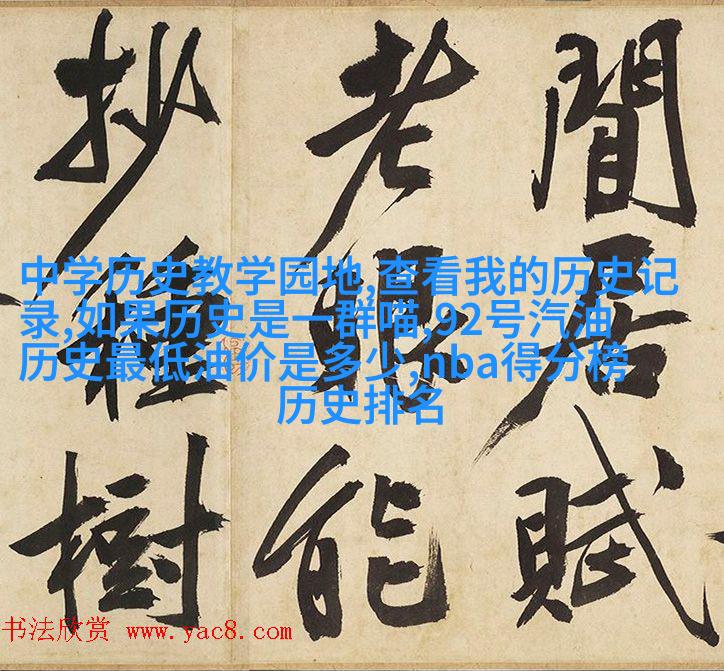 閒居賦
老眼能
抄種樹
中学历史教学园地,查看我的历史记
录,如果历史是一群喵,92号汽油
历史最低油价是多少,nba得分榜
历史排名
书法欣赏 www.yac8.com